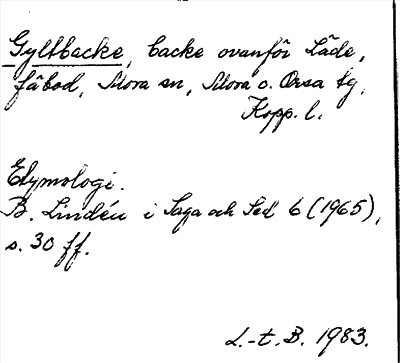 Gyltbacke, backe ovanför Läde,
fäbod, Mora sn, Mora o. Orsa tg,
Kopp. l.
Etymologi.
B. Lindén i Saga och Sed 6 (1965),
s. 30 ff.
L.-t. B. 1983.